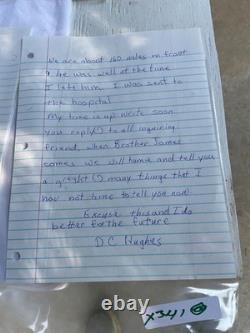 We are about 160 miles in front
he was well at the time
I left him. I was sent to
the hospital
My time is up write soon.
You exply(?) to all inquiring
friend, when Brother James
comes we will have and tell you
a great lot(?) many things that I
have not time to tell you now
Excuse this and I do
better for the future
D.C. Hughes
X341
© ebay